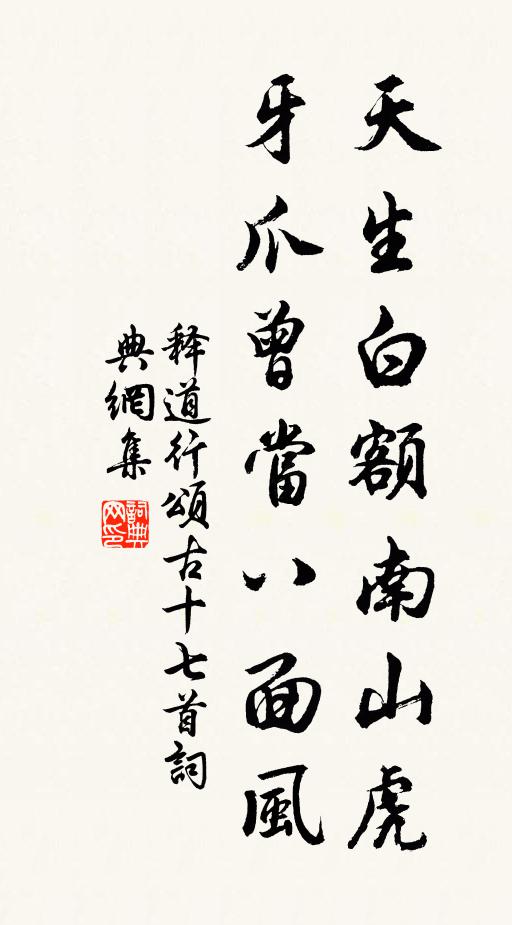 天生白額南山虎
牙爪曾當八面風
释道行頌古十七首詞
典網集
詞典
网印